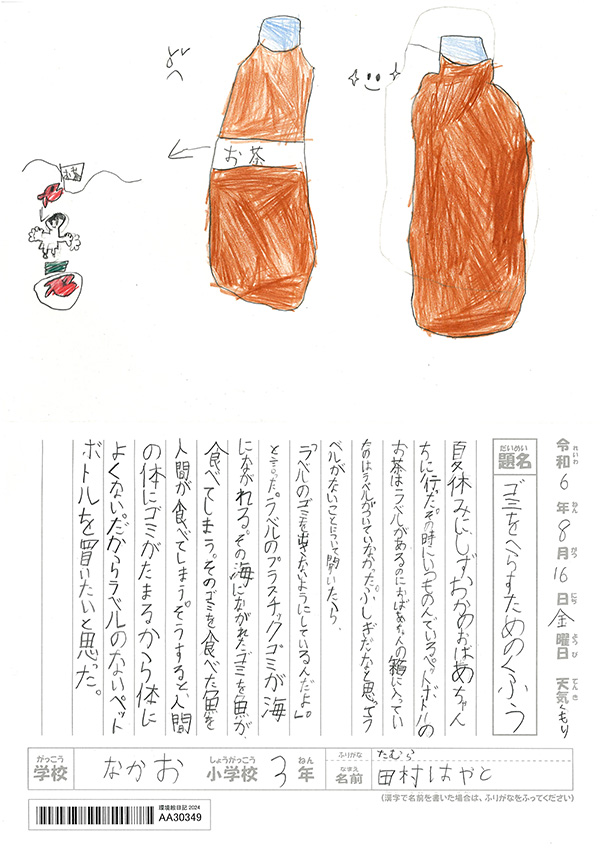 お茶
お茶
令和6年8月16日金曜日 天気くもり
れいわ ねん がつ にち ようび てんき
だいめい
題名 ゴミをへらすためのくふう
夏休みにしずおかのおばあちゃん
ちに行った。その時にいつものんでいるペットボトルの
お茶はラベルがあるのにおばあちゃんの箱に入ってい
たのはラベルがついていなかった。ふしぎだなと思ってラ
ベルがないことについて聞いたら、
「ラベルのゴミを出さないようにしているんだよ。」
と言った。ラベルのプラスチックゴミが海
にながれる。その海にながれたゴミを魚が、
食べてしまう。そのゴミを食べた魚を
人間が食べてしまう。そうすると、人間
の体にゴミがたまるから体に
よくない。だからラベルのないペット
ボトルを買いたいと思った。
がっこう しょうがっこう ねん
学校 なかお 小学校 3年
ふりがな たむら
なまえ
名前 田村はやと
(漢字で名前を書いた場合は、ふりがなをふってください)
環境絵日記 2024
AA30349